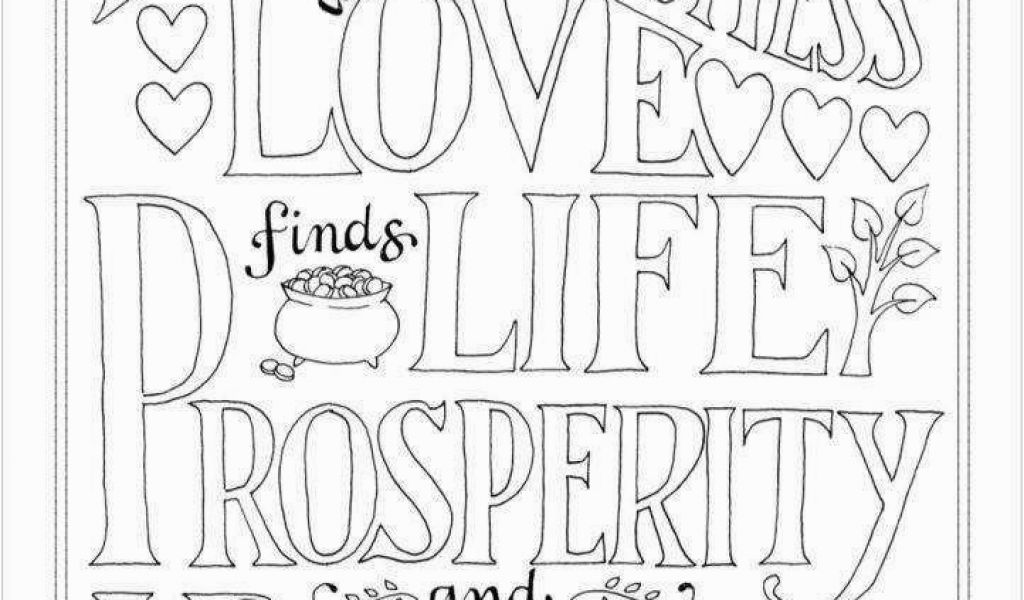 LOVE
finds LIFE
PROSPERITY
and